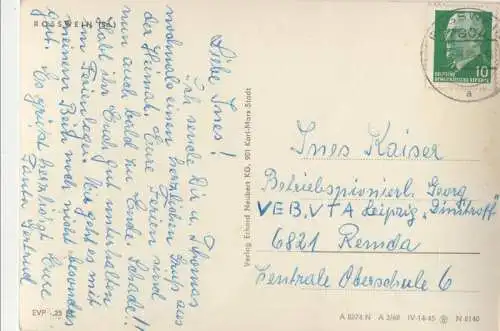 ROSSWEIN
Liebe Ines!
Ich sende Dir u. Thomas
nochmals einen herzlichen Gruß aus
der Heimat. Eure Ferien sind
nun auch bald zu Ende. Schade!!
Habt ihr Euch gut unterhalten
im Ferienlager. Mir geht es mit
meinem Bein noch nicht besonders
gut. Es grüßt herzlichst Eure
Tante Gertrud
EVP -,25
Verlag Erhard Neubert KG, 901 Karl-Marx-Stadt
DEUTSCHE
DEMOKRATISCHE REPUBLIK
10
a
Ines Kaiser
Betriebspionierl. Georg
VEB, VTA Leipzig „Dimitroff"
6821 Remda
Zentrale Oberschule 6
A 8274 N A 3/68 IV-14-45 N 8140